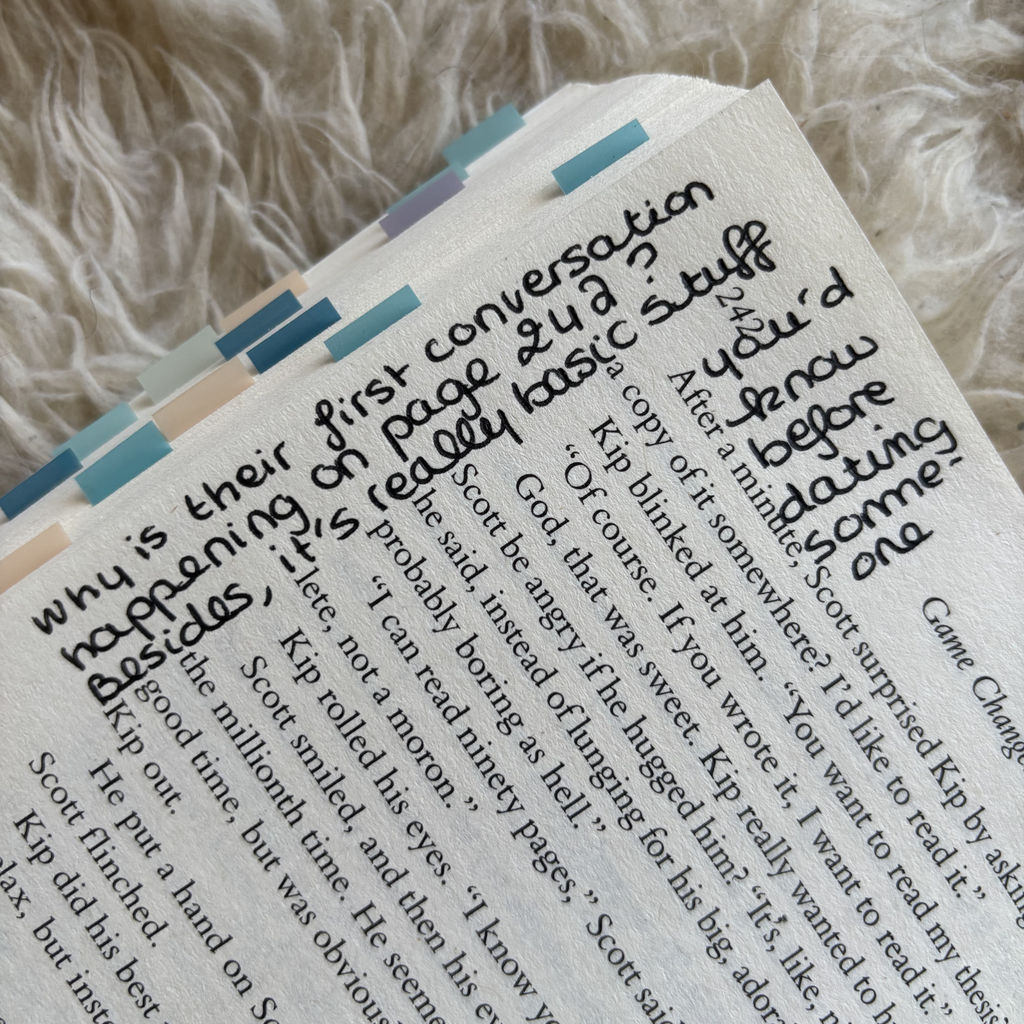 why is their first conversation
happening on page 242?
Besides, it's really basic stuff
you'd
know
before
dating,
some
one
242
Game Change
After a minute, Scott surprised Kip by asking
a copy of it somewhere? I'd like to read it.”
Kip blinked at him. “You want to read my thesis?
“Of course. If you wrote it, I want to read it.”
God, that was sweet. Kip really wanted to
Scott be angry if he hugged him? “It's, like,
he said, instead of lunging for his big,
probably boring as hell.”
“I can read ninety pages,” Scott said
lete, not a moron.”
Kip rolled his eyes. “I know
Scott smiled, and then his
the millionth time. He seeme
good time, but was obvious
Kip out.
He put a hand on
Scott flinched.
Kip did his best
lax, but